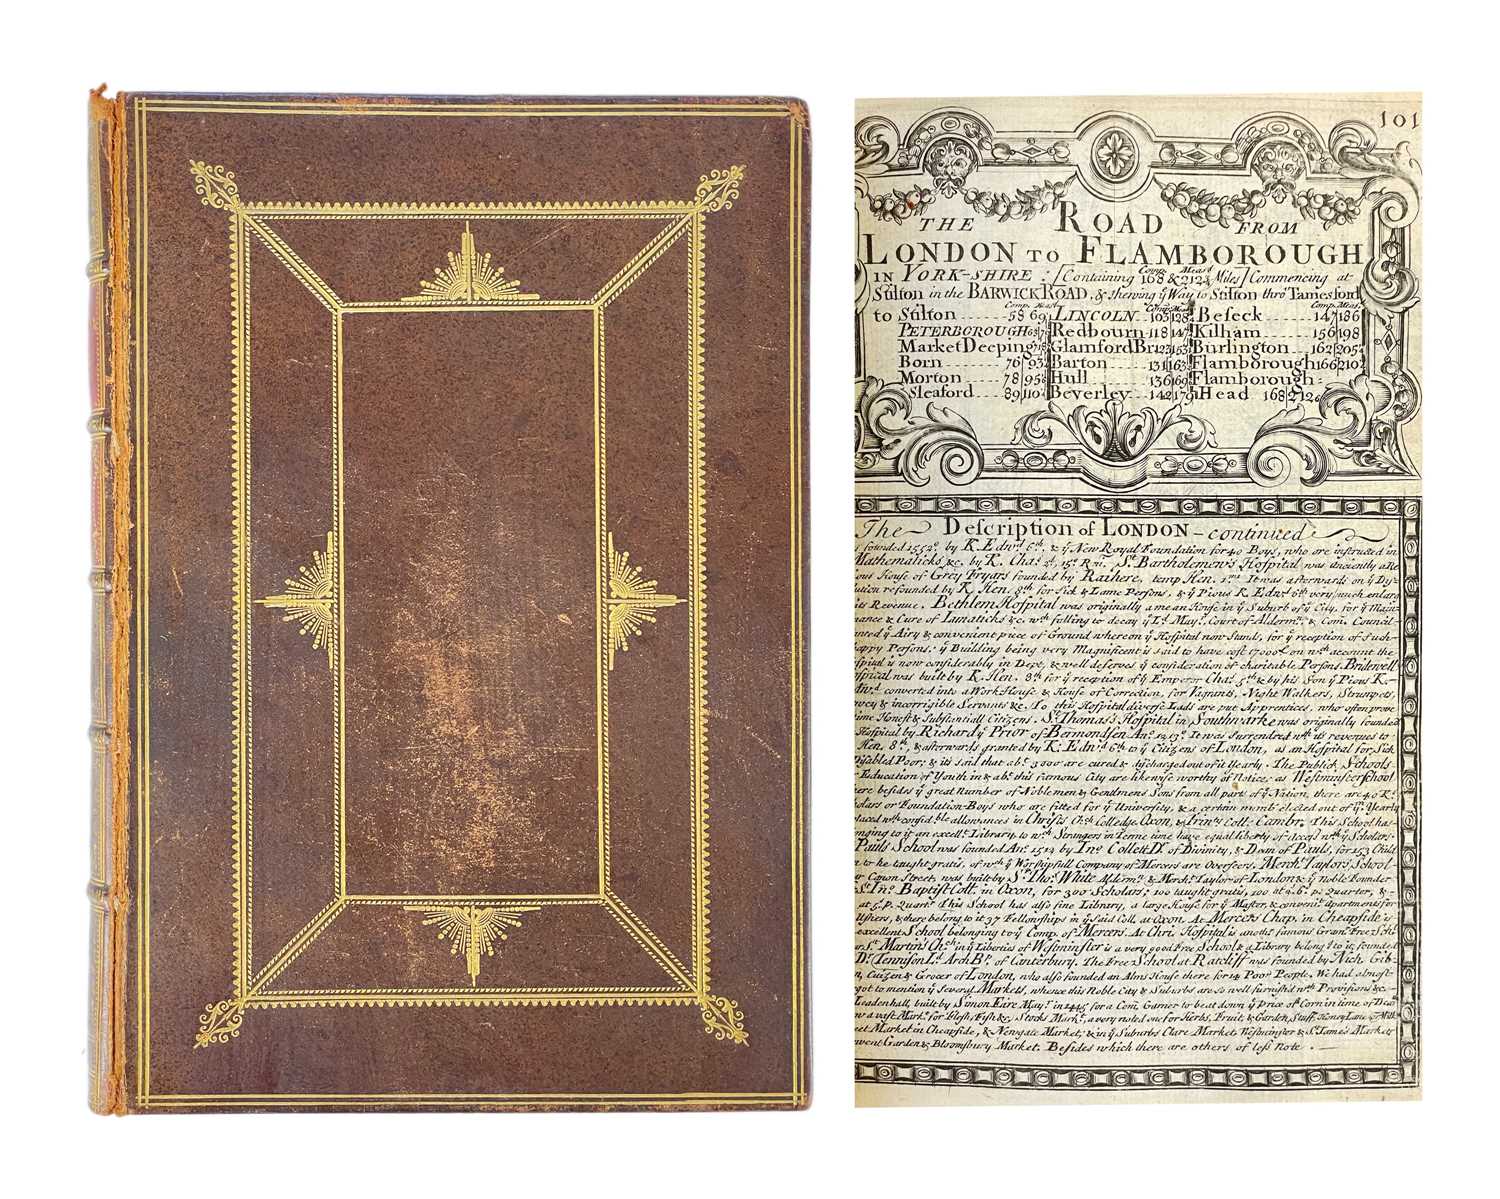 101
THE ROAD FROM
LONDON TO FLAMBOROUGH
IN YORK-SHIRE; [Containing Comp. 168 & Meas.d 212 Miles] Commencing at
Stilton in the BARWICK ROAD, & shewing ẙ Way to Stilton thrô Tamesford
Comp. Meas. Comp. Meas. Comp. Meas.
to Stilton 58 69 LINCOLN 103 128 Beseck 147 186
PETERBOROUGH Redbourn 118 147 Kilham 156 198
Market Deeping Glamford Br 123 153 Burlington 162 205
Born 76 93 Barton 131 163 Flamborough 166 210
Morton 78 95 Hull 136 169 Flamborough=
Sleaford 89 110 Beverley 142 179 Head 168 212
The Description of LONDON - continued
founded 1552. by K. Edwd. 6th. & ẙ New Royal Foundation for 40 Boys, who are instructed in
Mathematicks &c. by K. Chas. 2d. St. Bartholemew's Hospital was anciently a Re
ious House of Grey Fryars founded by Raihere, temp Hen. 1mi It was afterwards on ẙ Dis
lution refounded by K. Hen. 8th. for Sick & Lame Persons, & ẙ Pious K. Edwd. 6th very much enlarg
its Revenue. Bethlem Hospital was originally a mean House in ẙ Suburb of ẙ City, for ẙ Main
nance & Cure of Lunaticks &c. wch falling to decay ẙ Ld. Mayr. Court of Alderm.n & Com. Council
nted ẙ Airy & convenient piece of Ground whereon ẙ Hospital now Stand, for ẙ reception of such
happy Persons; ẙ Building being very Magnificent is said to have cost 17000£ on wch account the
spital is now considerably in Dept, & well deserves ẙ consideration of charitable Persons. Bridewell
ospital was built by K. Hen. 8th for ẙ reception of ẙ Emperor Chas. 5th & by his Son ẙ Pious K.
Edwd. converted into a Work House & House of Correction, for Vagrants, Night Walkers, Strumpets,
& incorrigible Servants &c. To this Hospital diverse Lads are put Apprentices, who often prove
time Honest & Substantial Citizens. St. Thomas's Hospital in Southwarke was originally founded
Hospital by Richard ẙ Prior of Bermondsen Ano. 1213. It was Surrendred wth its revenues to
Hen. 8th, & afterwards granted by K: Edwd 6th to ẙ Citizens of London, as an Hospital for Sick
Disabled Poor; & its said that abt. 3000 are cured & discharged out of it Yearly. The Publick Schools
r Education of Youth in & abt. this famous City are likewise worthy of Notice; as Westminster School
here besides ẙ great Number of Noblemen & Gentlmens Sons from all parts of ẙ Nation, there are 40 Ks.
cholars or Foundation-Boys who are fitted for ẙ University, & a certain numbr. elected out of ẙm Yearly
placed wth considble allowances in Christs Chch Colledge Oxon, & Trinty Coll: Cambr. This School has
onging to it an excellt. Library, to wch Strangers in Terme time have equal liberty of access wth ẙ Scholars.
Pauls School was founded Ano. 1512 by Jno. Collett Dr. of Divinity, & Dean of Pauls, for 153 Child
n to be taught gratis, of wch ẙ Worshipfull Company of Mercers are Overseers. Mercht. Taylors School
r Canon Street, was built by Sr. Tho: White Alderm. & Mercht. Taylor of London & ẙ noble Founder
St. Jno. Baptist Coll. in Oxon, for 300 Scholars; 100 taught gratis, 100 at 2s. 6d. p. Quarter, &
at 5s. p. Quartr. This School has also fine Library, a large House for ẙ Master, & convenit. apartments for
Ushers, & there belong to it 37 Fellowships in ẙ said Coll. at Oxon. At Mercers Chap. in Cheapside is
excellent School belonging to ẙ Comp. of Mercers. At Chri. Hospital is anothr famous Gramr. Free Schl.
St. Martins Chch in ẙ Liberties of Westminster is a very good Free School & a Library belongg. to it, founded
Dr. Tennison Ld. Arch Bp. of Canterbury. The Free School at Ratcliff was founded by Nich Gib
n, Citizen & Grocer of London, who also founded an Alms House there for 14 Poor People. We had almost
got to mention ẙ Several Markets, whence this Noble City & Suburbs are so well furnish'd wth Provisions &c
Leadenhall, built by Simon Eire Mayr. in 1445 for a Com. Garner to beat down ẙ Price of Corn in time of Dear
now a vast Markt. for Flesh, Fish &c; Stocks Markt; a very noted one for Herbs, Fruit, & Garden Stuff, Honey Lane
eet Market in Cheapside, & Newgate Market; & in ẙ Suburbs Clare Market, Westminster & St. James Market
Covent Garden & Bloomsbury Market. Besides which there are others of less Note.